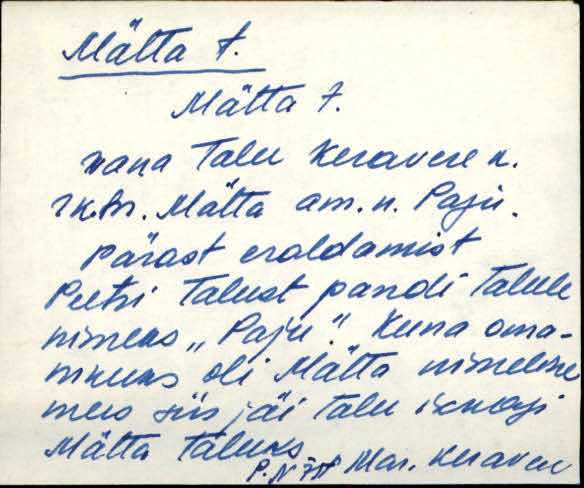 Mätta t.
Mätta 7.
vana Talu Keravere k.
rkbr. Mätta am. n. Paju.
pärast eraldamist
Peetri Talust pandi Talule
nimeks „Paju". Kuna oma-
nikuks oli Mätta nimeline
mees siis jäi talu ikkagi
Mätta Taluks
Mar. Keravere